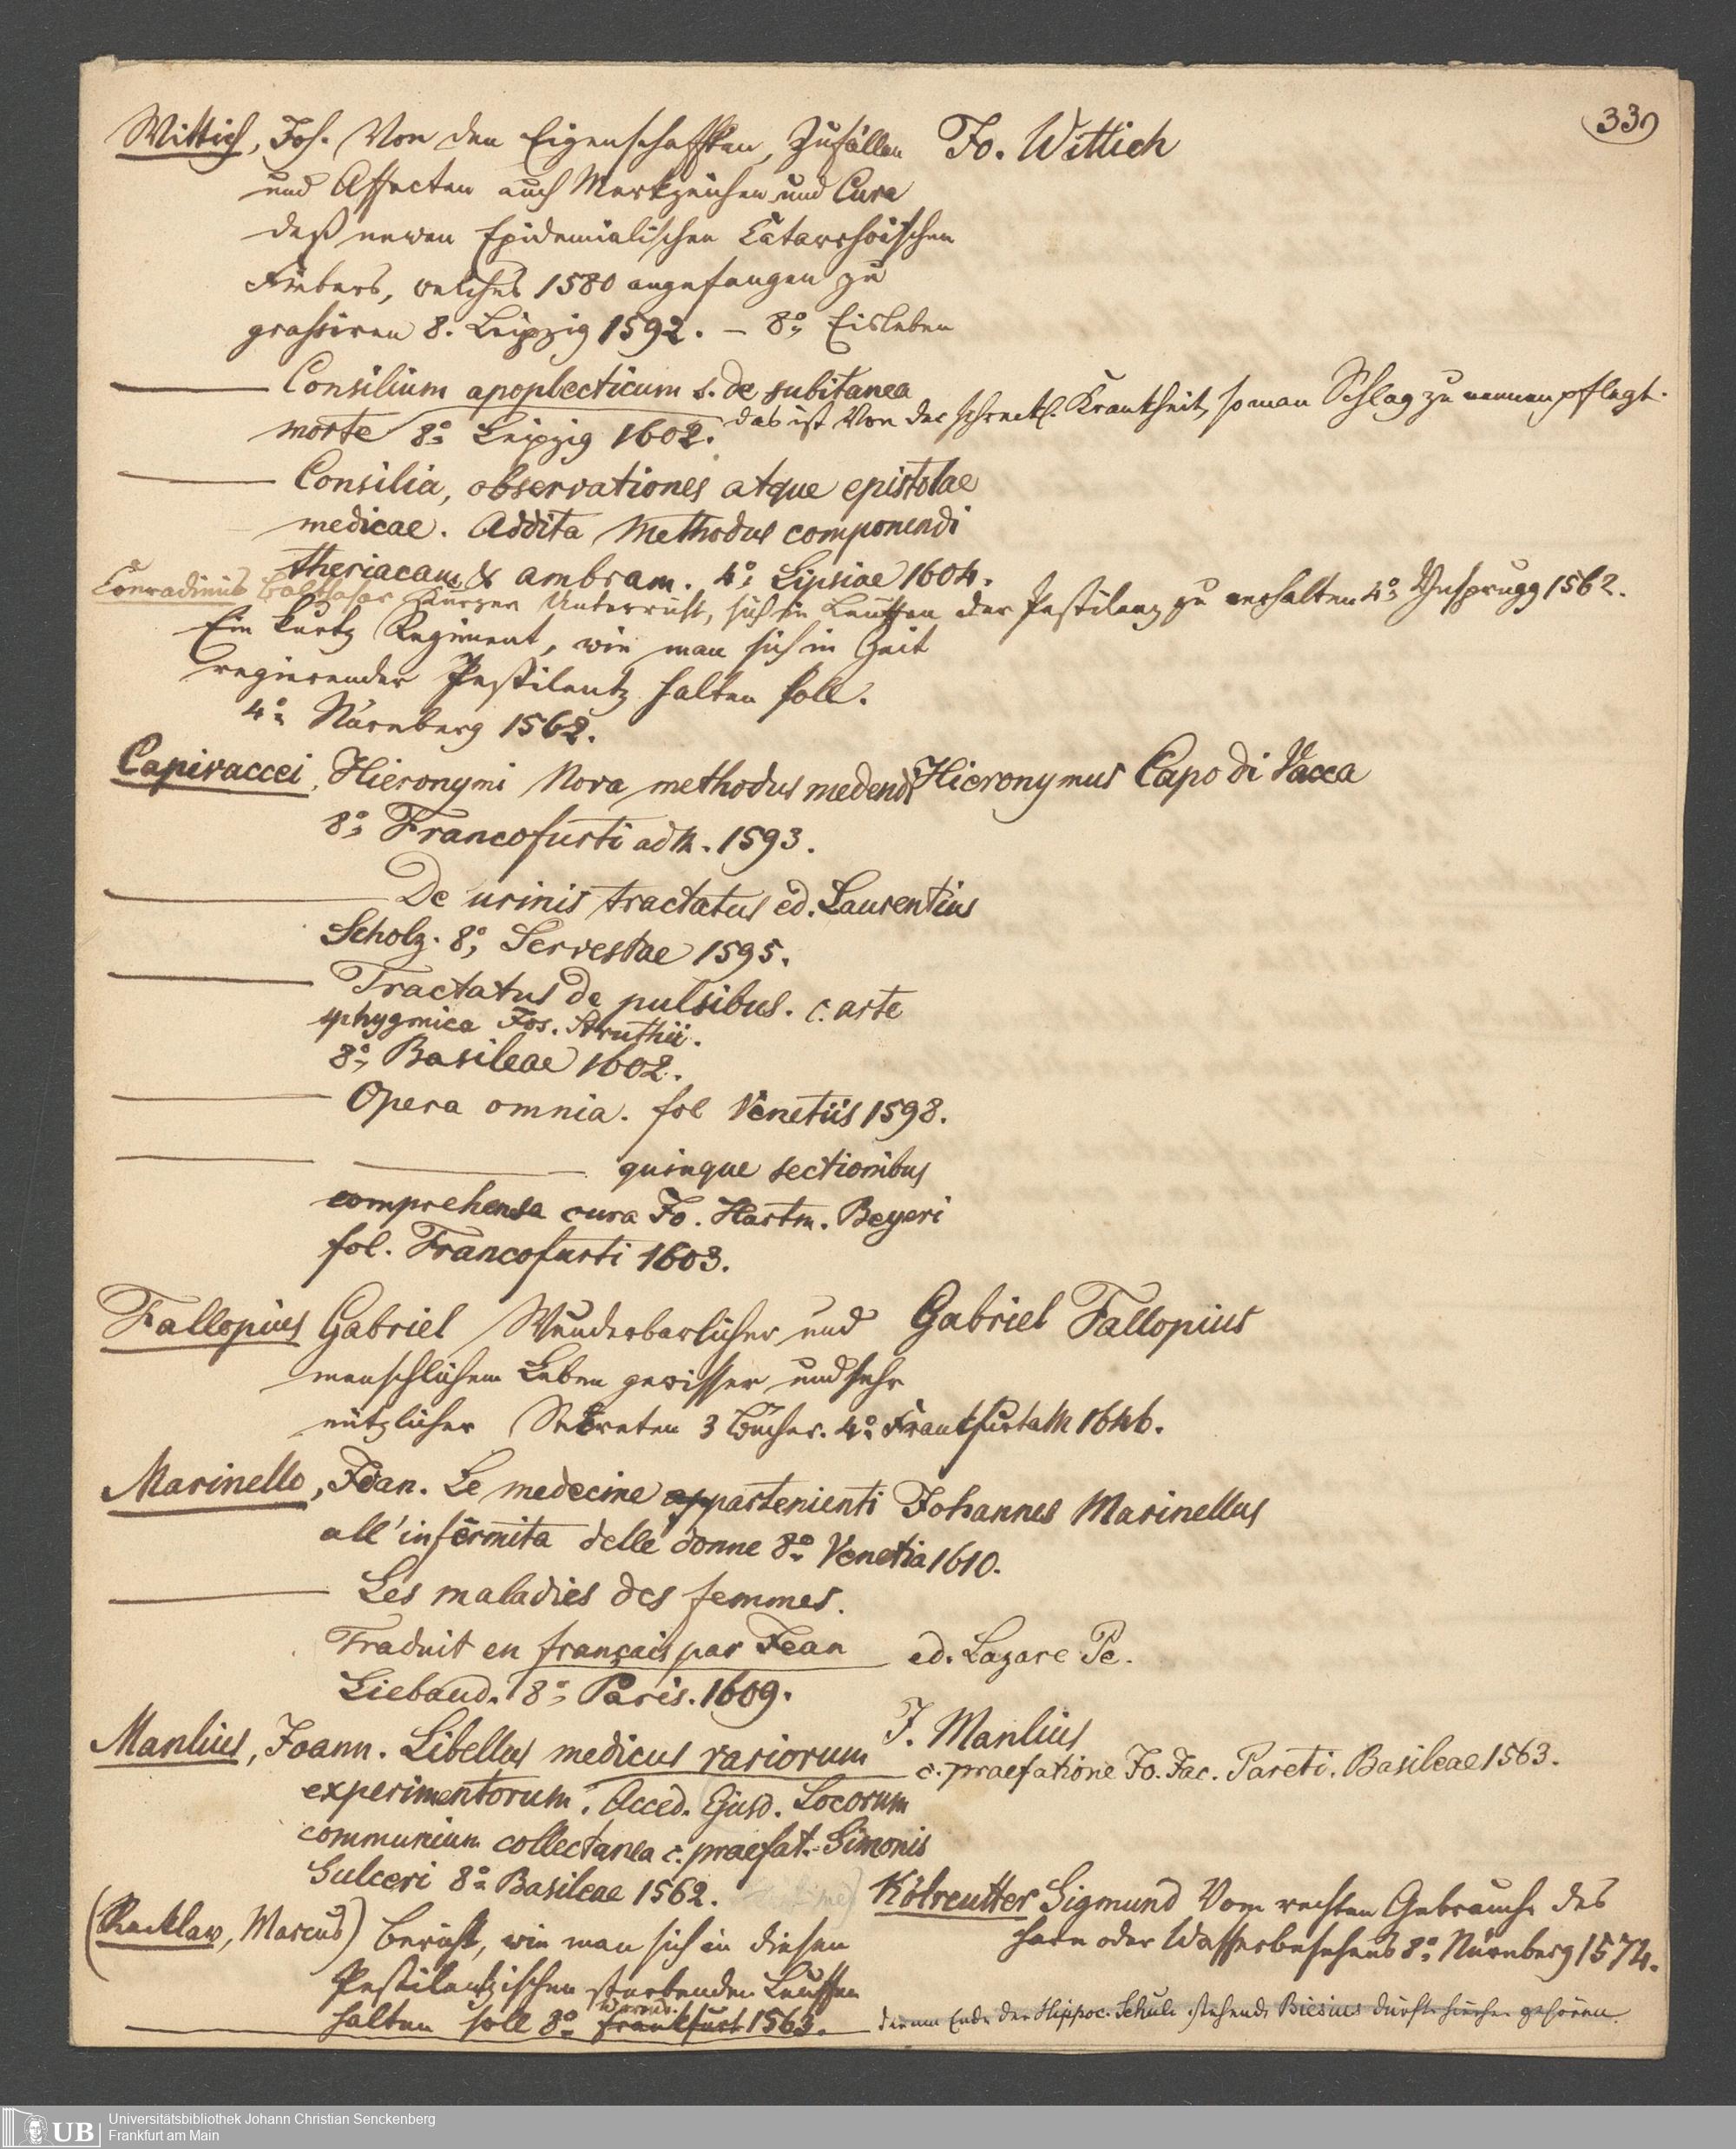 339
Wittich, Joh. Von den Eigenschafften, Zufällen
und Affecten auch Merkzeichen und Cura
deß newen Epidemialischen Catarrhöischen
Fiebers, welches 1580 angefangen zu
grassiren 8. Leipzig 1592. – 8° Eisleben
Jo. Wittich
Consilium apoplecticum s. de subitanea
morte 8° Leipzig 1602.
das ist Von der schreckl. Krankheit, so man Schlag zu nennen pflegt.
Consilia, observationes atque epistolae
medicae. Addita Methodus componendi
theriacam & ambram. 4° Lipsiae 1604.
Conradinus Balthasar Kurzer Unterricht, sich in Leuffen der Pestilenz zu erhalten 4° Ynsprugg 1562.
Ein kurtz Regiment, wie man sich in Zeit
regierender Pestilentz halten soll.
4° Nürnberg 1562.
Capivaccei, Hieronymi Nova methodus medendi
8° Francofurti ad M. 1593.
Hieronymus Capo di Vacca
De urinis tractatus ed. Laurentius
Scholz. 8° Servestae 1595.
Tractatus de pulsibus. c. arte
sphygmica Jos. Struthii.
8° Basileae 1602.
Opera omnia. fol Venetiis 1598.
quinque sectionibus
comprehensa cura Jo. Hartm. Beyeri
fol. Francofurti 1603.
Fallopius Gabriel Wunderbarlicher und
menschlichem Leben gewisser und sehr
nützlicher Secreten 3 Bücher. 4° Frankfurt a M 1646.
Gabriel Fallopius
Marinello, Joan. Le medecine appartenienti
all'infermita delle donne 8° Venetia 1610.
Johannes Marinellus
Les maladies des femmes.
Traduit en français par Jean
Liebaud. 8° Paris. 1609.
ed. Lazare Pe.
Manlius, Joann. Libellus medicus variorum
experimentorum. Acced. Ejusd. Locorum
communium collectanea c. praefat. Simonis
Sulceri 8° Basileae 1562.
J. Manlius
c. praefatione Jo. Jac. Pareti. Basileae 1563.
(Racklaw, Marcus) Bericht, wie man sich in diesen
Pestilentzischen sterbenden Leuffen
halten soll 8° Frankfurt 1563.
Kölreutter Sigmund Vom rechten Gebrauche des
Harn oder Wasserbesehens 8° Nürnberg 1574.
Ende der Hippoc. Schule stehende Biesius dürfte hierher gehören.
UB
Universitätsbibliothek Johann Christian Senckenberg
Frankfurt am Main